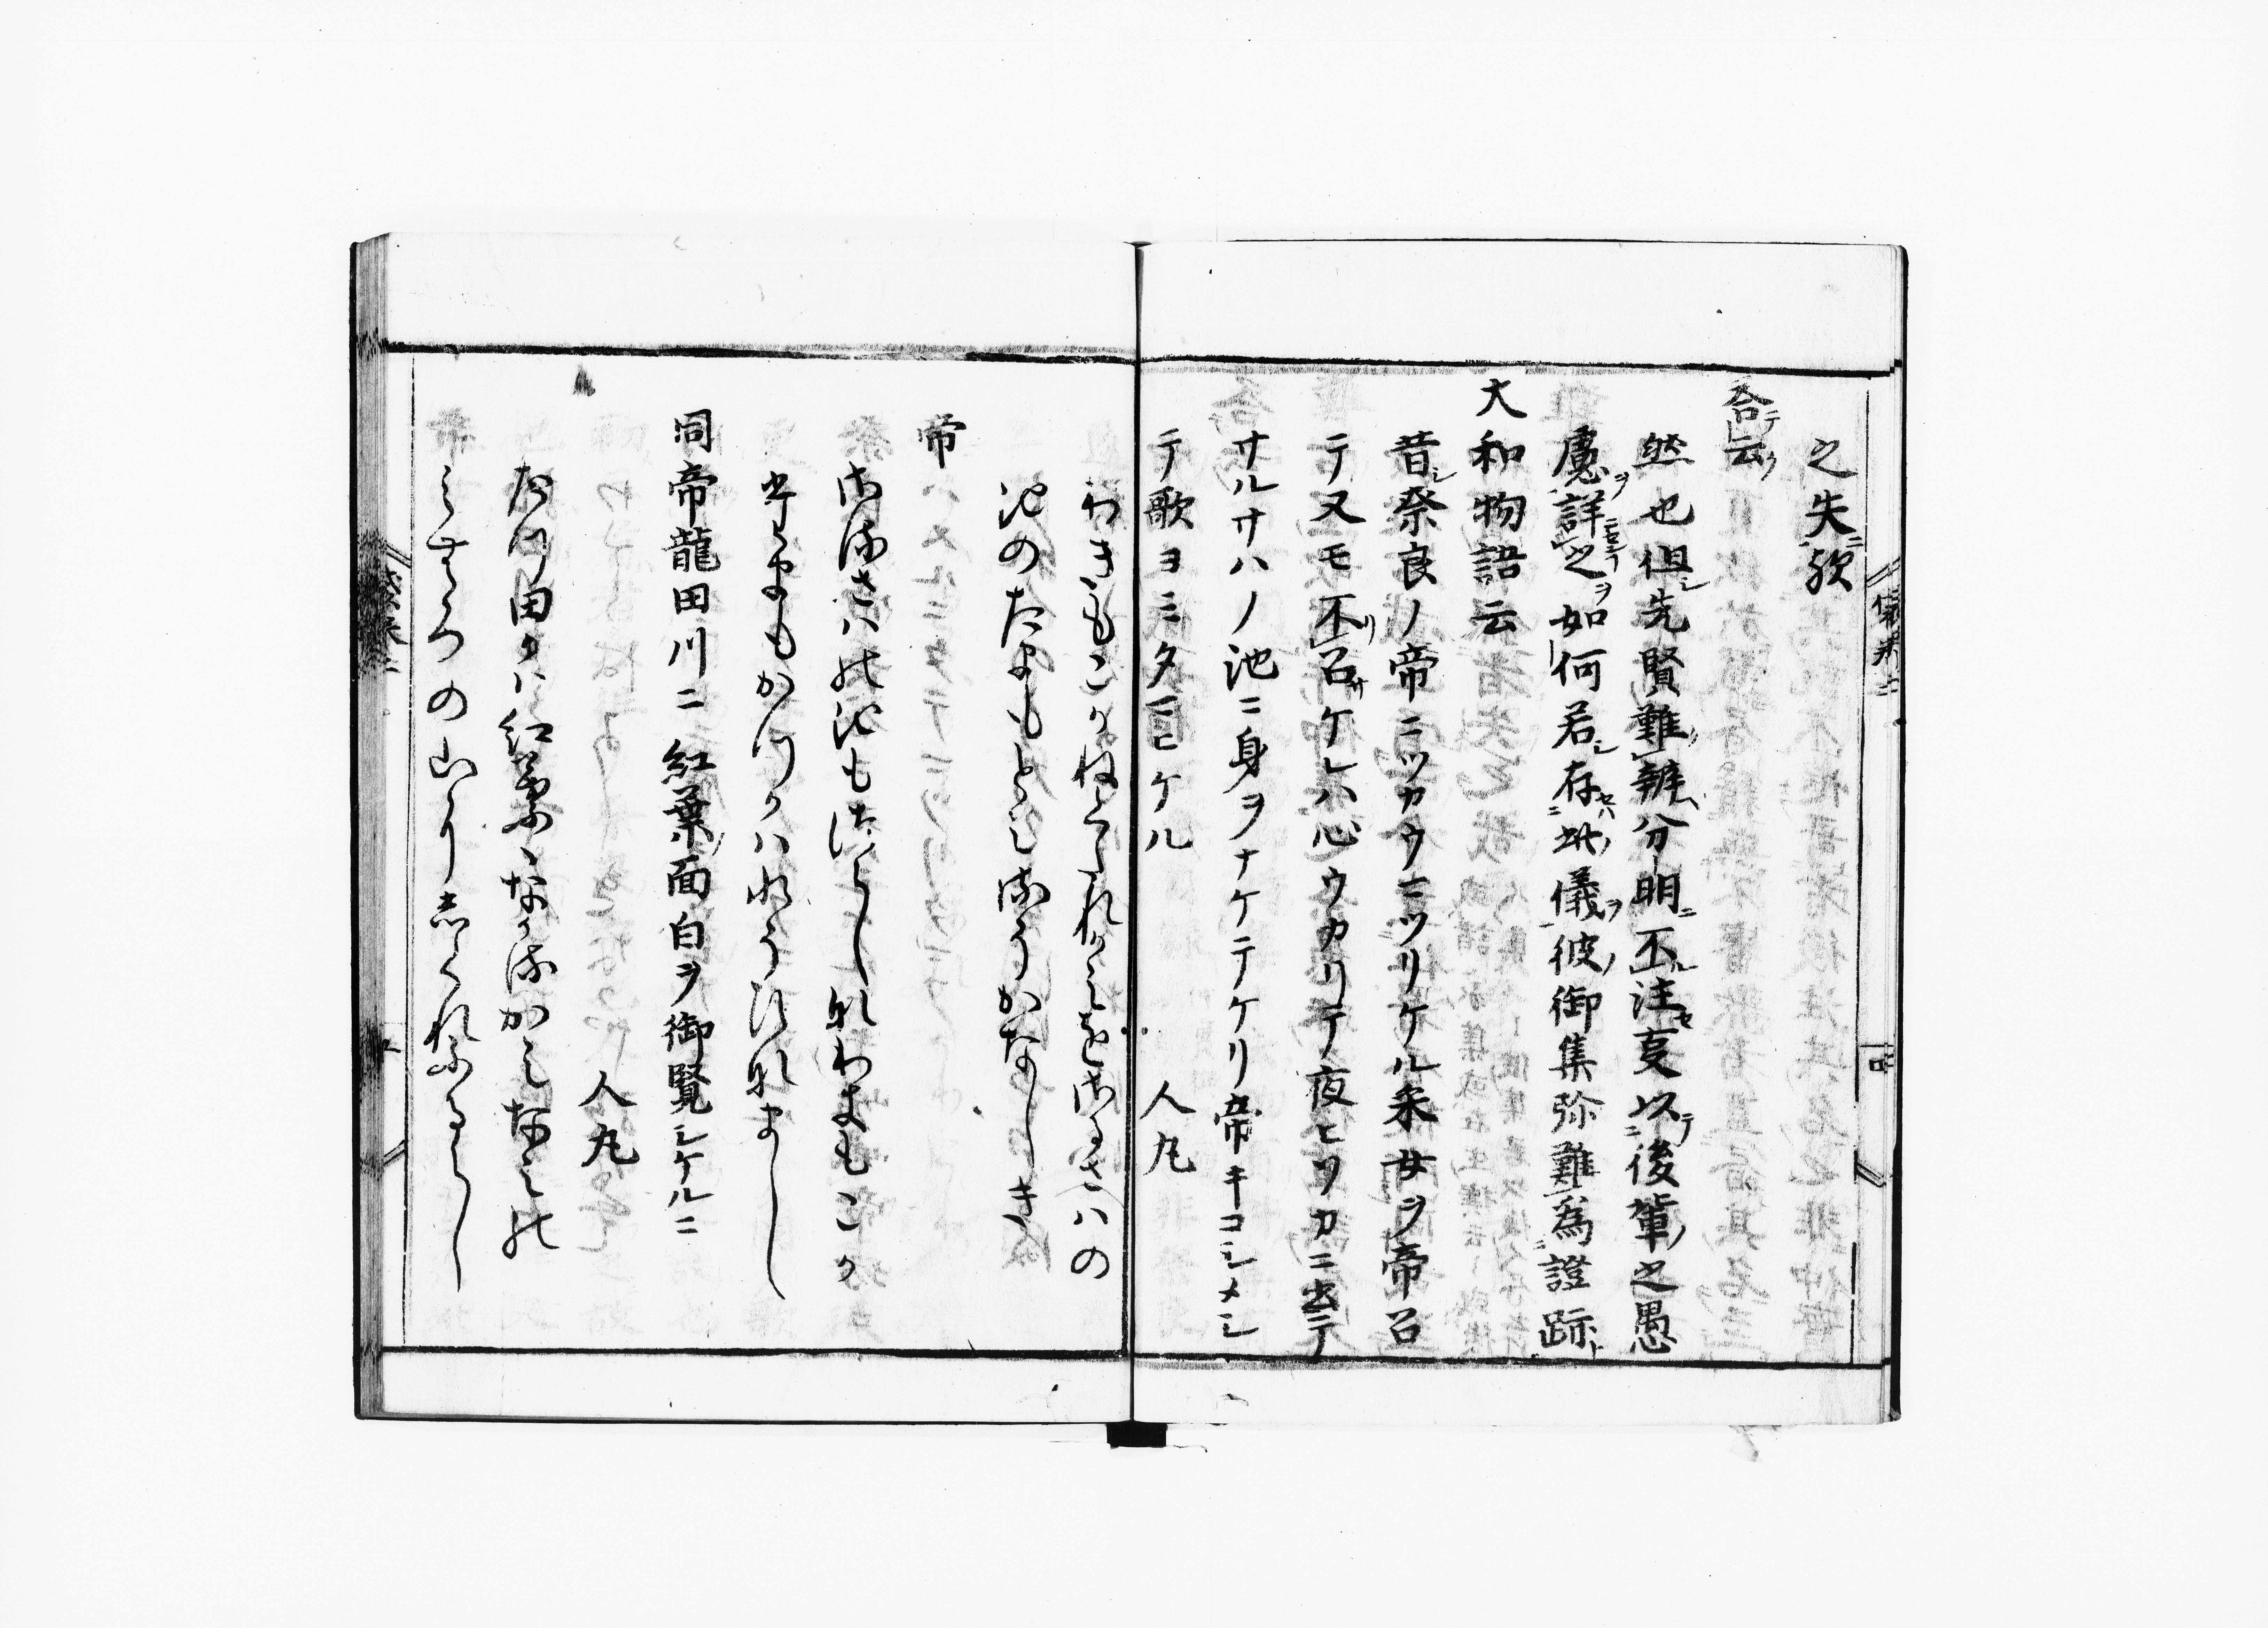 之失歟
答云
然也但先賢難辨分明不注疑以後輩之愚
慮詳之如何若存此儀彼御集弥難為證跡
大和物語云
昔奈良ノ帝ニツカウマツリケル采女ヲ帝召
テ又モ不召ケレハ心ウカリテ夜ヒソカニ出テ
サルサハノ池ニ身ヲナケテケリ帝キコシメシ
テ歌ヨミタマヒケル 人丸
わきもこかねくたれかみをさるさはの
池のたまもとみるそかなしき
帝
さるさはの池もつらしなわきもこか
たまもかつかはみつそひなまし
同帝龍田川ニ紅葉面白ヲ御覧シケルニ
人丸
たつ田川紅葉ゝなかるかみなみの
みむろの山にしくれふるらし